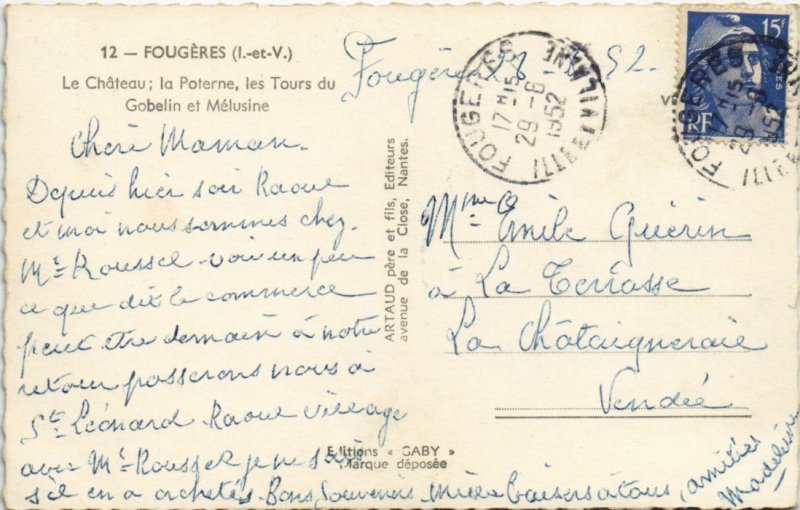 12 — FOUGÈRES (I.-et-V.)
Le Château; la Poterne, les Tours du
Gobelin et Mélusine
Fougères 52.
Chère Maman.
Depuis hier soir Raoul
et moi nous sommes chez
Mr Roussel voir un peu
ce que dit le commerce
peut être demain à notre
retour passerons nous à
St Léonard Raoul village
avec Mr Roussel je ne sais
s'il en a achetés. Bons Souvenirs mille baisers à tous, amitiés
Madeleine
ARTAUD père et fils, Editeurs
avenue de la Close, Nantes.
Editions « GABY »
Marque déposée
FOUGERES
17 H 15
29-8
1952
ILLE ET VILAINE
15F
RF
FOUGERES
Mme Emile Guérin
à La Terrasse
La Châtaigneraie
Vendée